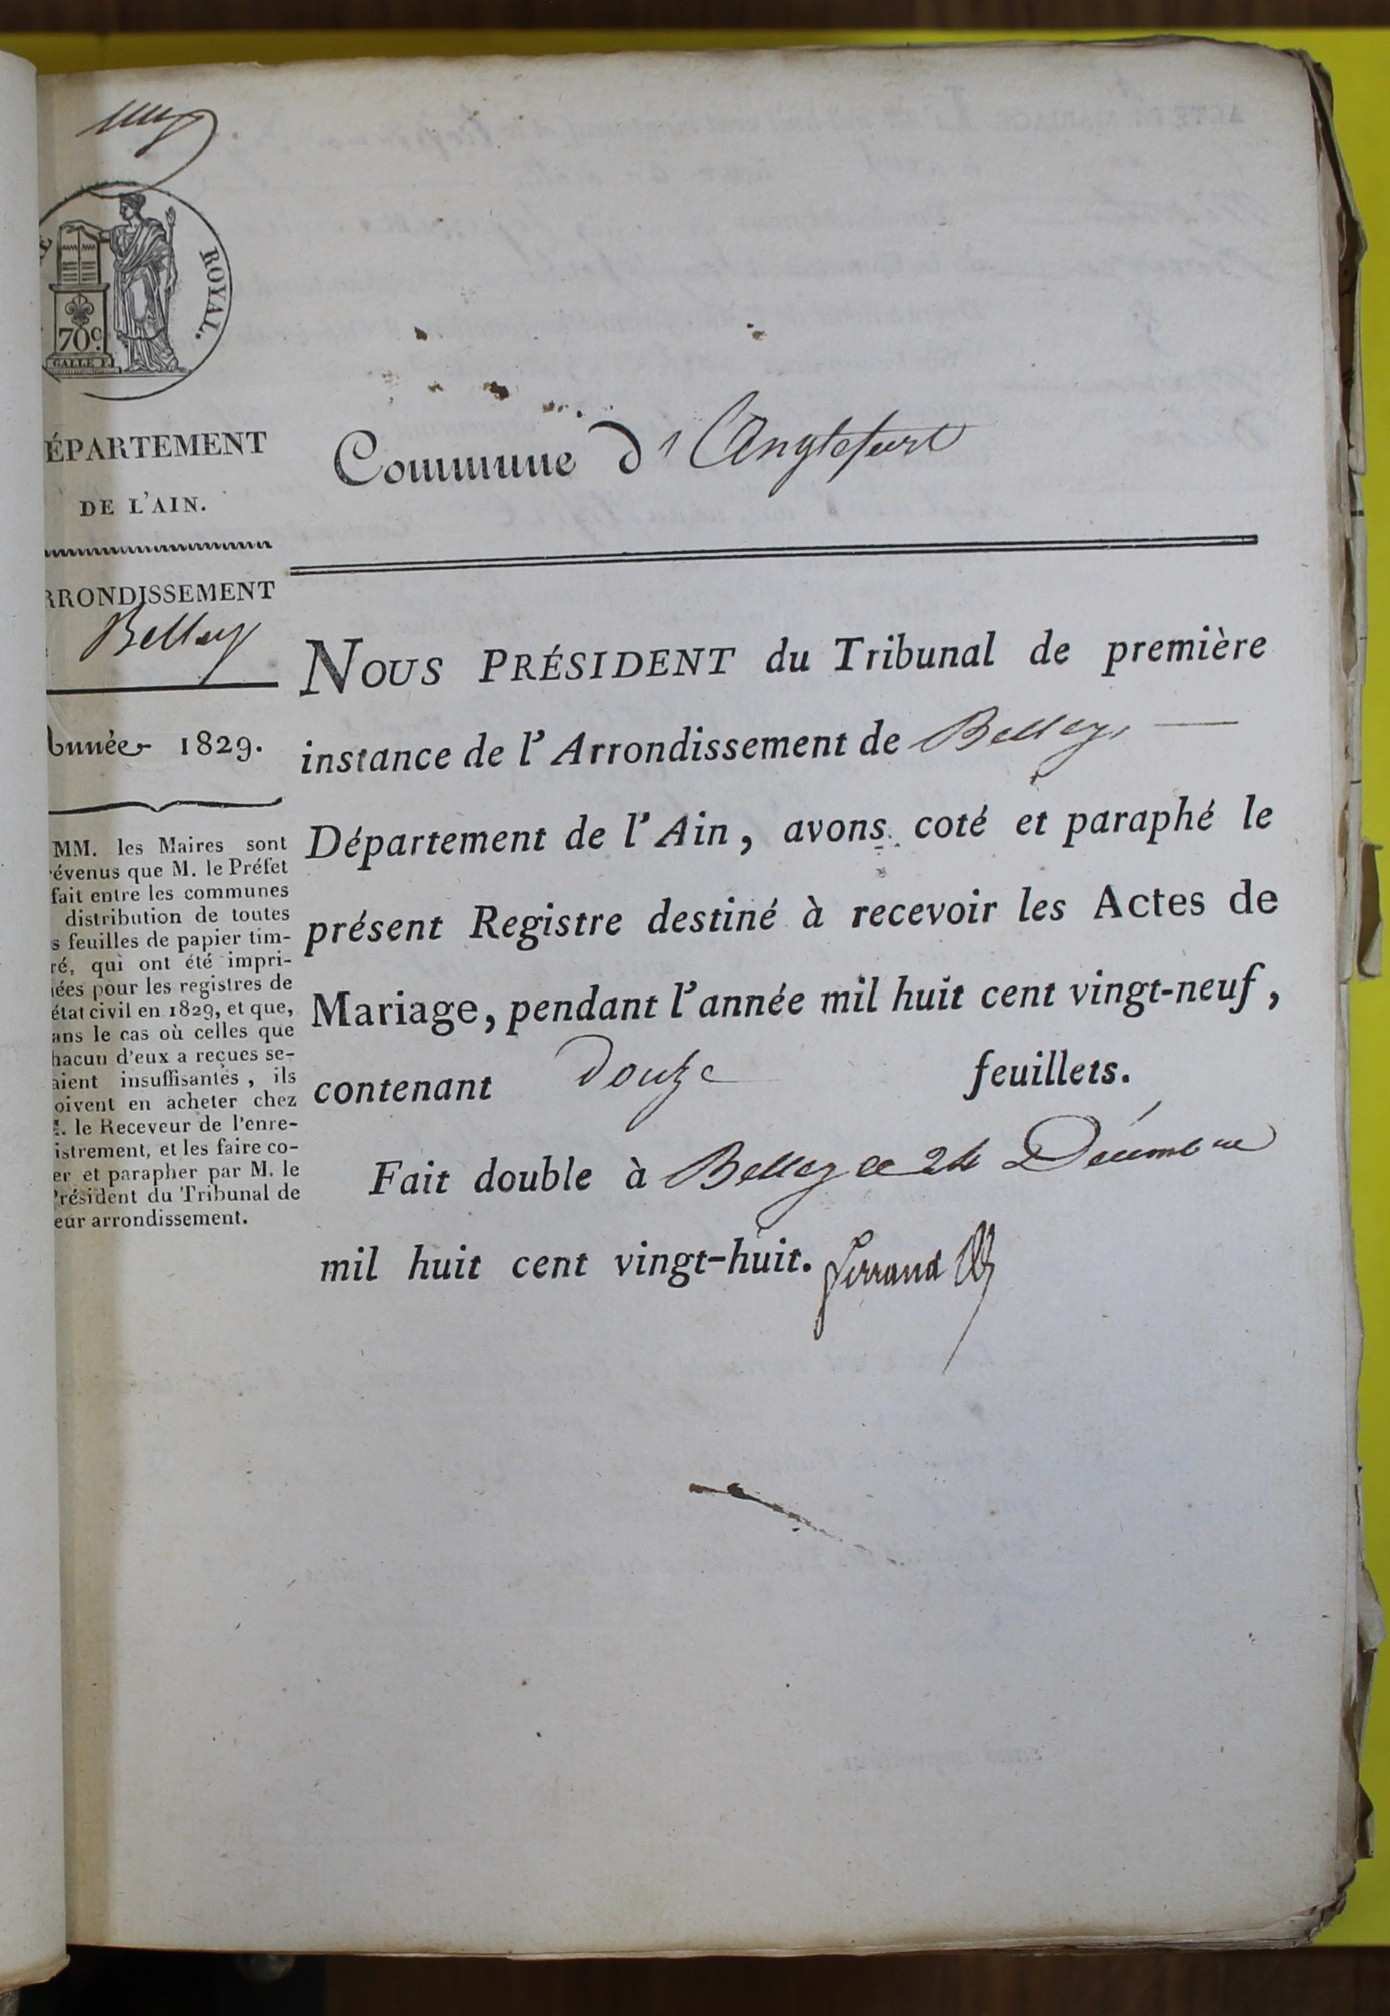 ROYAL.
70c
GALLE F.
ÉPARTEMENT
DE L'AIN.
RRONDISSEMENT
Belley
Année 1829.
MM. les Maires sont
évenus que M. le Préfet
fait entre les communes
distribution de toutes
s feuilles de papier tim-
ré, qui ont été impri-
ées pour les registres de
état civil en 1829, et que,
ans le cas où celles que
hacun d'eux a reçues se-
aient insuffisantes, ils
oivent en acheter chez
. le Receveur de l'enre-
istrement, et les faire co-
er et parapher par M. le
Président du Tribunal de
eur arrondissement.
Commune d'Anglefort
NOUS PRÉSIDENT du Tribunal de première
instance de l'Arrondissement de Belley,
Département de l'Ain, avons coté et paraphé le
présent Registre destiné à recevoir les Actes de
Mariage, pendant l'année mil huit cent vingt-neuf,
contenant douze feuillets.
Fait double à Belley le 24 Décembre
mil huit cent vingt-huit. Ferrand